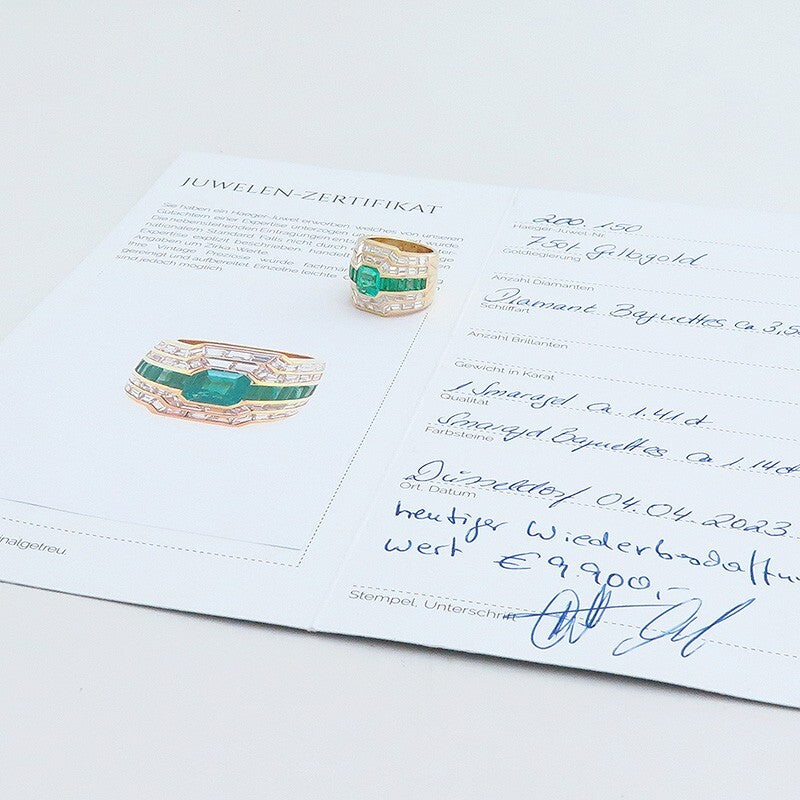 JUWELEN-ZERTIFIKAT
Sie haben ein Haeger-Juwel erworben, welches von unseren
Gutachtern einer Expertise unterzogen
Die nebenstehenden Eintragungen
nationalem Standard. Falls nicht durch
Expertise erfolgt beschrieben,
Angaben um Zirka-Werte.
Ihre Vintage Preziose wurde
gereinigt und aufbereitet. Einzelne leichte
sind jedoch möglich.
nalgetreu.
200.150
Haeger Juwel Nr.
750f. Gelbgold
Goldlegierung
Anzahl Diamanten
Diamant. Baguettes ca 3,5
Schliffart
Anzahl Brillanten
Gewicht in Karat
1 Smaragd ca. 1.41 ct
Qualität
Smaragd Baguettes ca 1.14 ct
Farbsteine
Düsseldorf 04.04.2023
Ort, Datum
heutiger Wiederbeschaffu
wert € 9.900,-
Stempel, Unterschrift